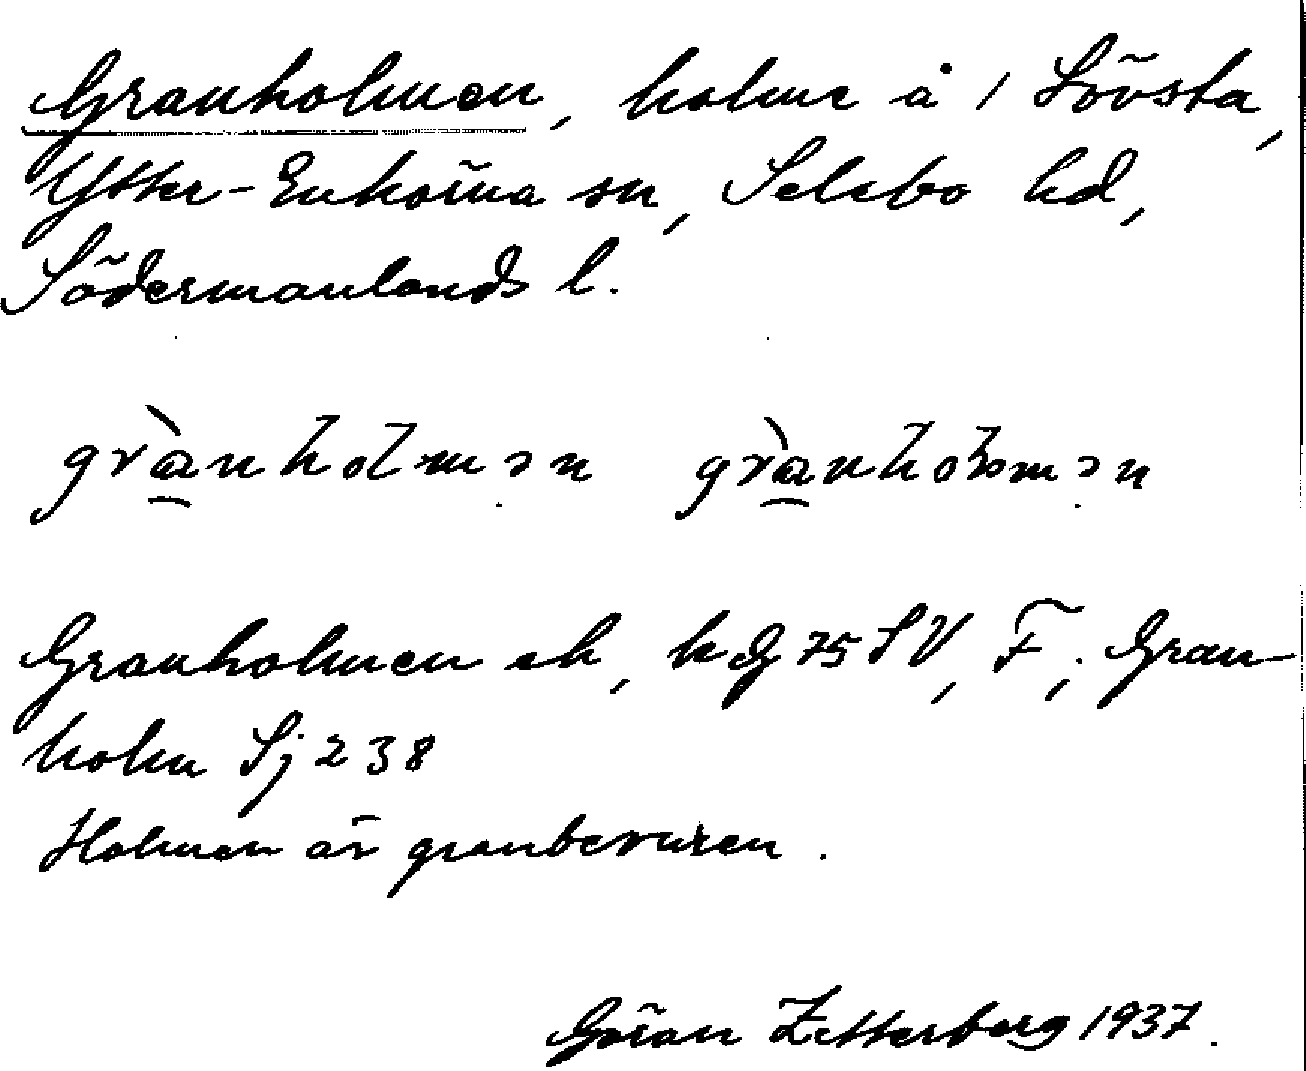 Granholmen, holme å 1 Lövsta,
Ytter-Enhörna sn, Selebo hd,
Södermanlands l.
grànholmən grànhoɫmən
Granholmen ek, hdg 75 SV, F; Gran-
holm Sj 238
Holmen är granbevuxen.
Göran Zetterberg 1937.